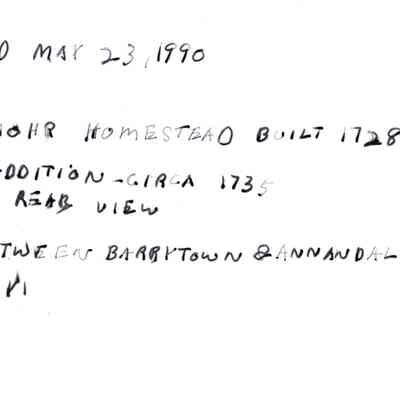 D MAY 23, 1990
MOHR HOMESTEAD BUILT 1728
ADDITION - CIRCA 1735
REAR VIEW
TWEEN BARRYTOWN & ANNANDAL